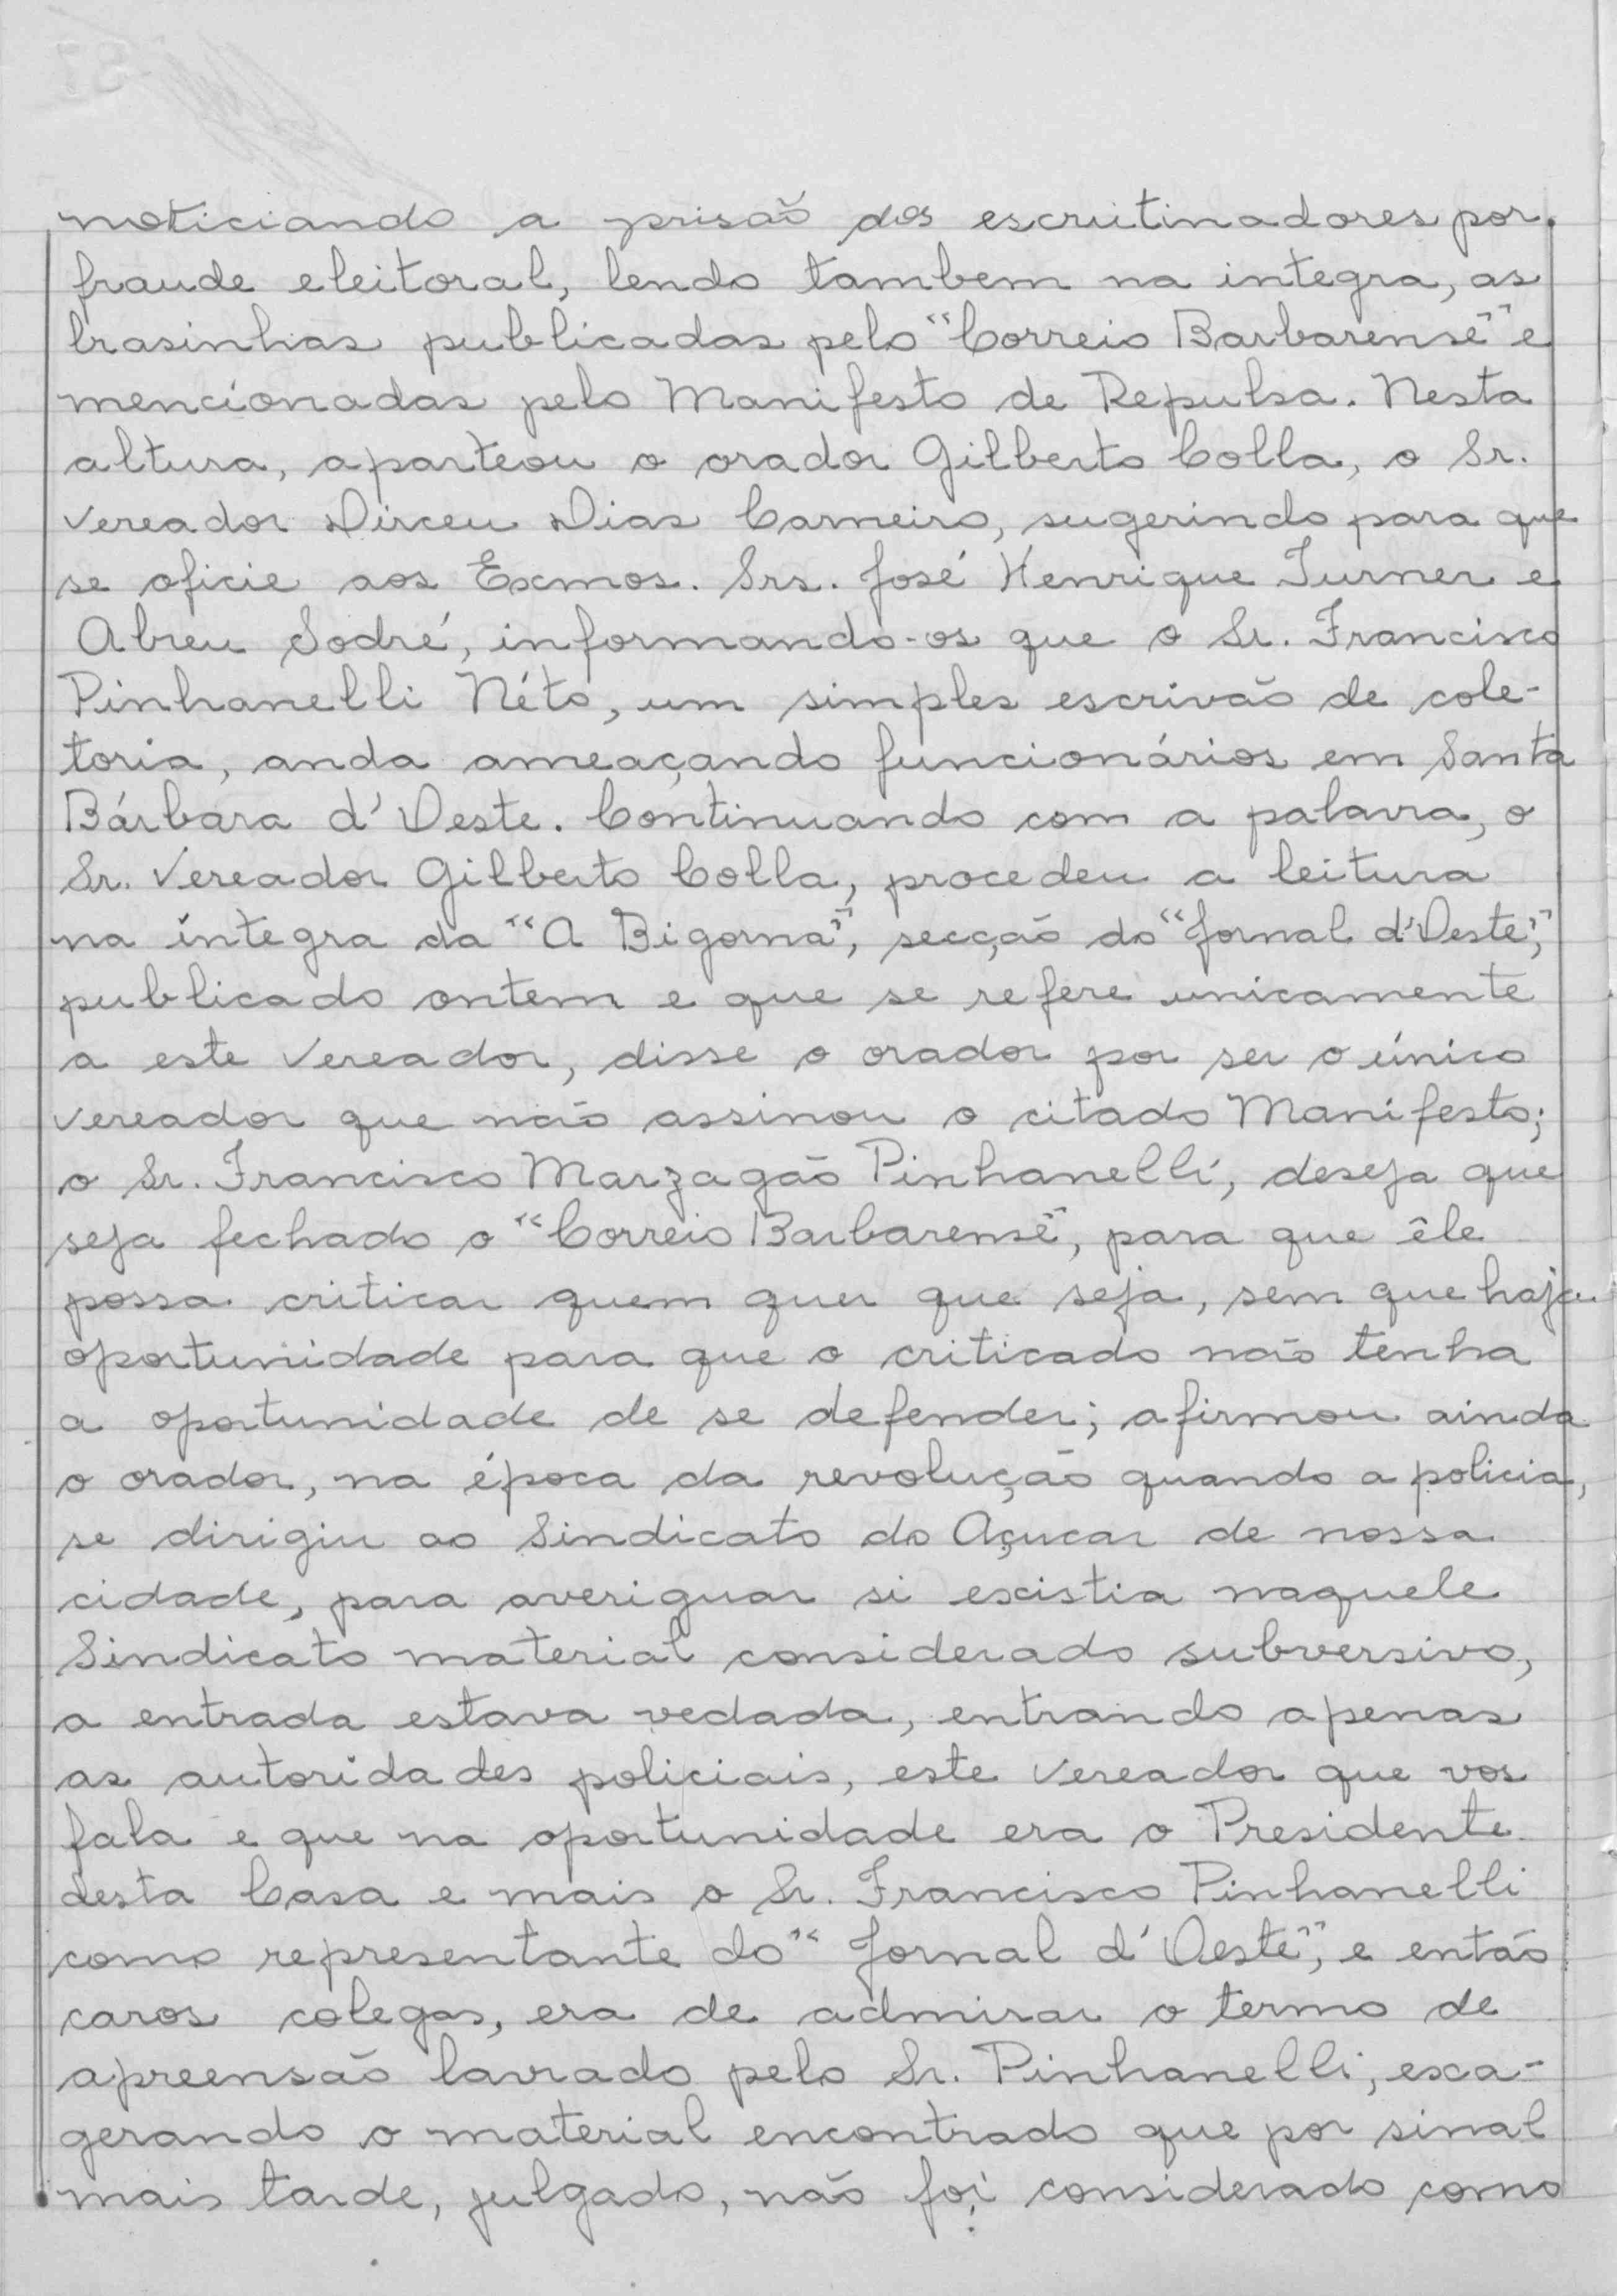 noticiando a prisão dos escrutinadores por
fraude eleitoral, lendo tambem na integra, as
brasinhas publicadas pelo "Correio Barbarense" e
mencionadas pelo Manifesto de Repulsa. Nesta
altura, aparteou o orador Gilberto Colla, o Sr.
Vereador Dirceu Dias Carneiro, sugerindo para que
se oficie aos Exmos. Srs. José Henrique Turner e
Abreu Sodré, informando-os que o Sr. Francisco
Pinhanelli Néto, um simples escrivão de cole-
toria, anda ameaçando funcionários em Santa
Bárbara d'Oeste. Continuando com a palavra, o
Sr. Vereador Gilberto Colla, procedeu a leitura
na íntegra da "A Bigorna", secção do "Jornal d'Oeste",
publicado ontem e que se refere unicamente
a este Vereador, disse o orador por ser o único
vereador que não assinou o citado Manifesto;
o Sr. Francisco Marzagão Pinhanelli, deseja que
seja fechado o "Correio Barbarense", para que êle
possa criticar quem quer que seja, sem que haja
oportunidade para que o criticado não tenha
a oportunidade de se defender; afirmou ainda
o orador, na época da revolução quando a policia,
se dirigiu ao Sindicato do Açucar de nossa
cidade, para averiguar si existia naquele
Sindicato material considerado subversivo,
a entrada estava vedada, entrando apenas
as autoridades policiais, este Vereador que vos
fala e que na oportunidade era o Presidente
desta Casa e mais o Sr. Francisco Pinhanelli
como representante do "Jornal d'Oeste", e então
caros colegas, era de admirar o termo de
apreensão lavrado pelo Sr. Pinhanelli, exa-
gerando o material encontrado que por sinal
mais tarde, julgado, não foi considerado como